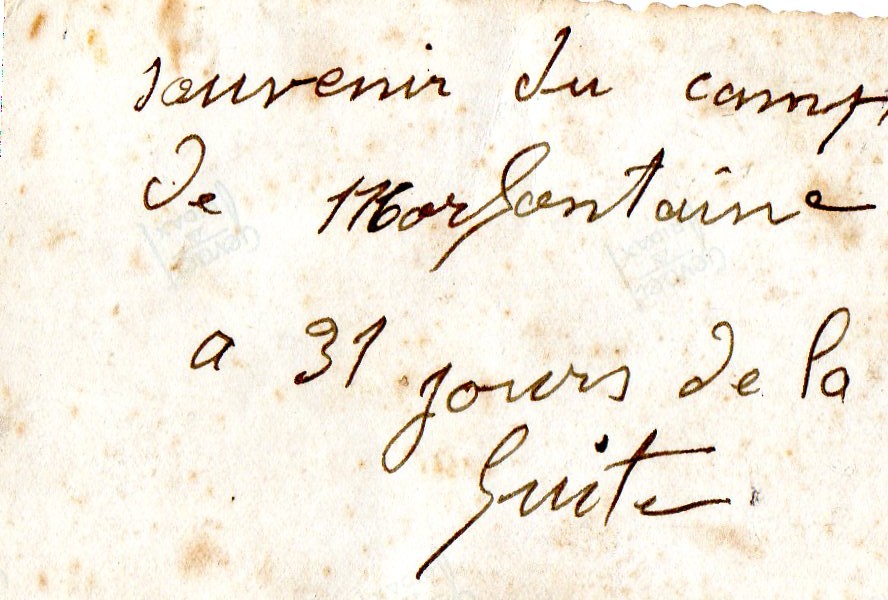 souvenir du camp
de Morfontaine
a 31 jours de la
fuite